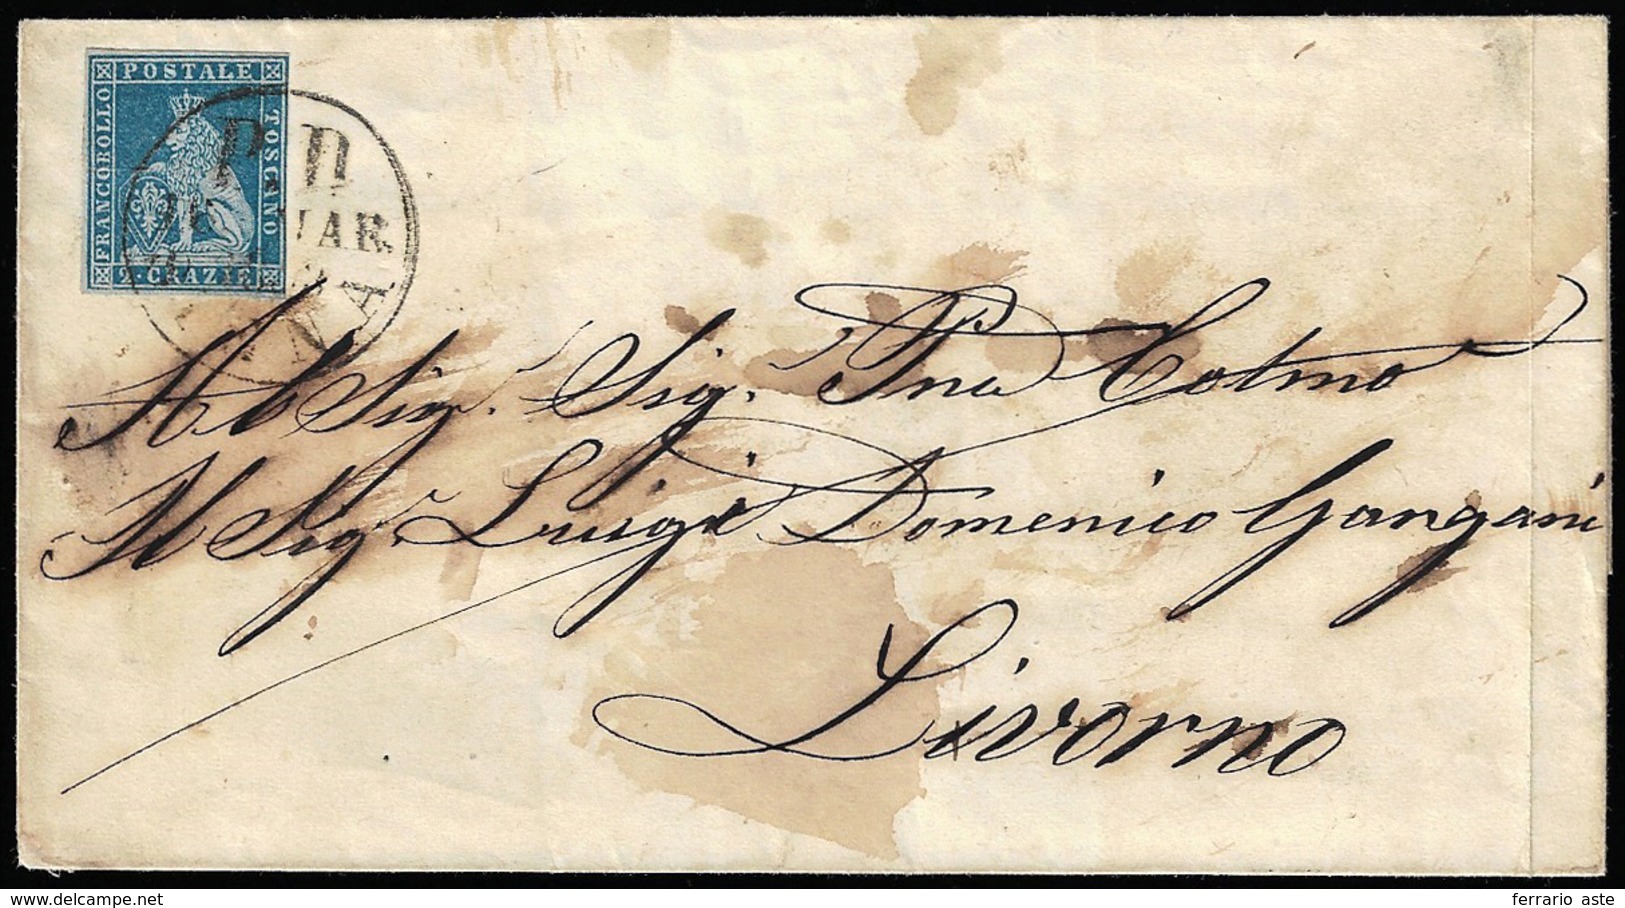 POSTALE
FRANCOBOLLO
TOSCANO
2. CRAZIE
P.D
MAR
All Sig. Sig. Pne Colmo
Al Sig. Luigi Domenico Gangani
Livorno
delcampe.net
ferrario aste